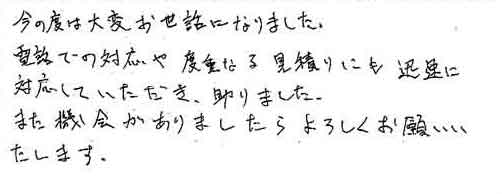 今の度は大変お世話になりました。
電話での対応や度重なる見積りにも迅速に
対応していただき、助りました。
また機会がありましたらよろしくお願いい
たします。